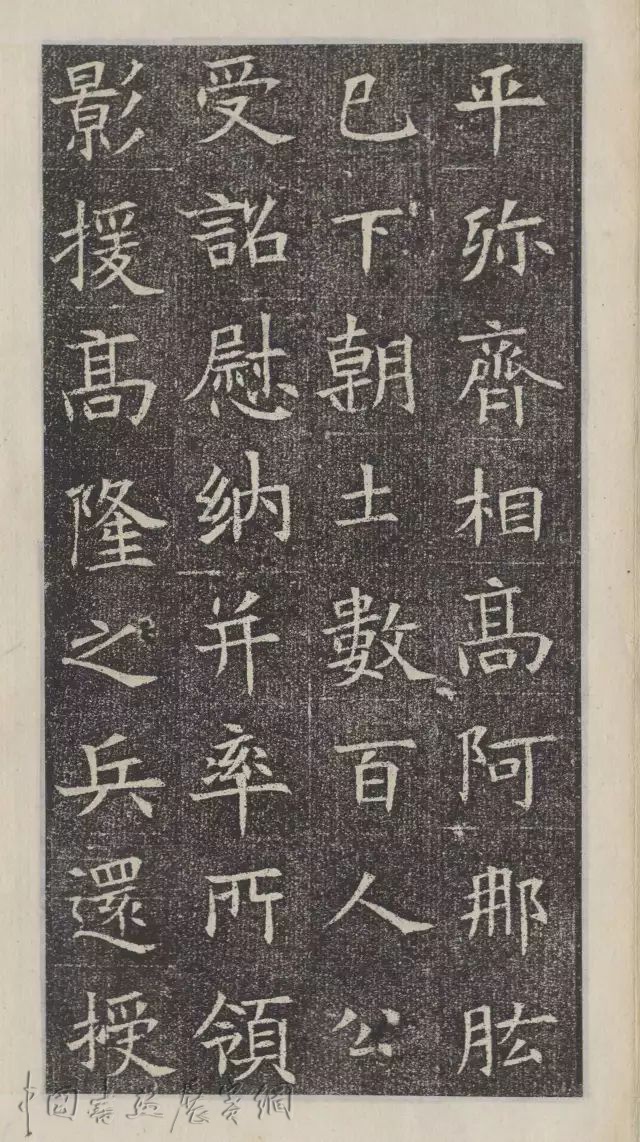 平弥齊相高阿那肱
已下朝士數百人公
受詔慰納并率所領
影援高隆之兵還授
中国書法展賽網